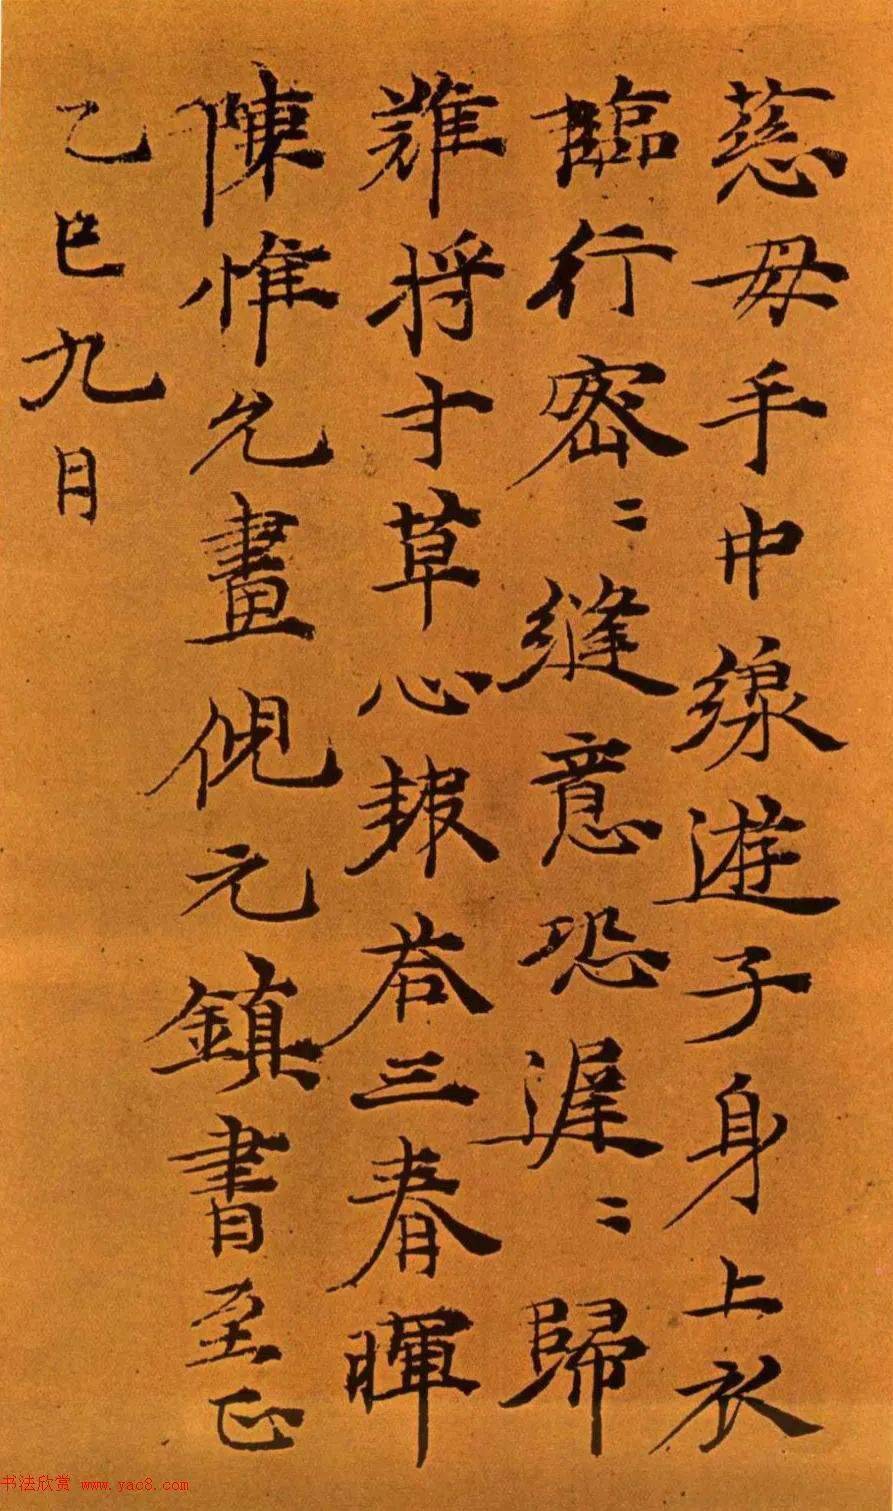 慈母手中線遊子身上衣
臨行密〻縫意恐遲〻歸
難將寸草心報荅三春暉
陳惟允畫倪元鎮書至正
乙巳九月
书法欣赏 www.yac8.com